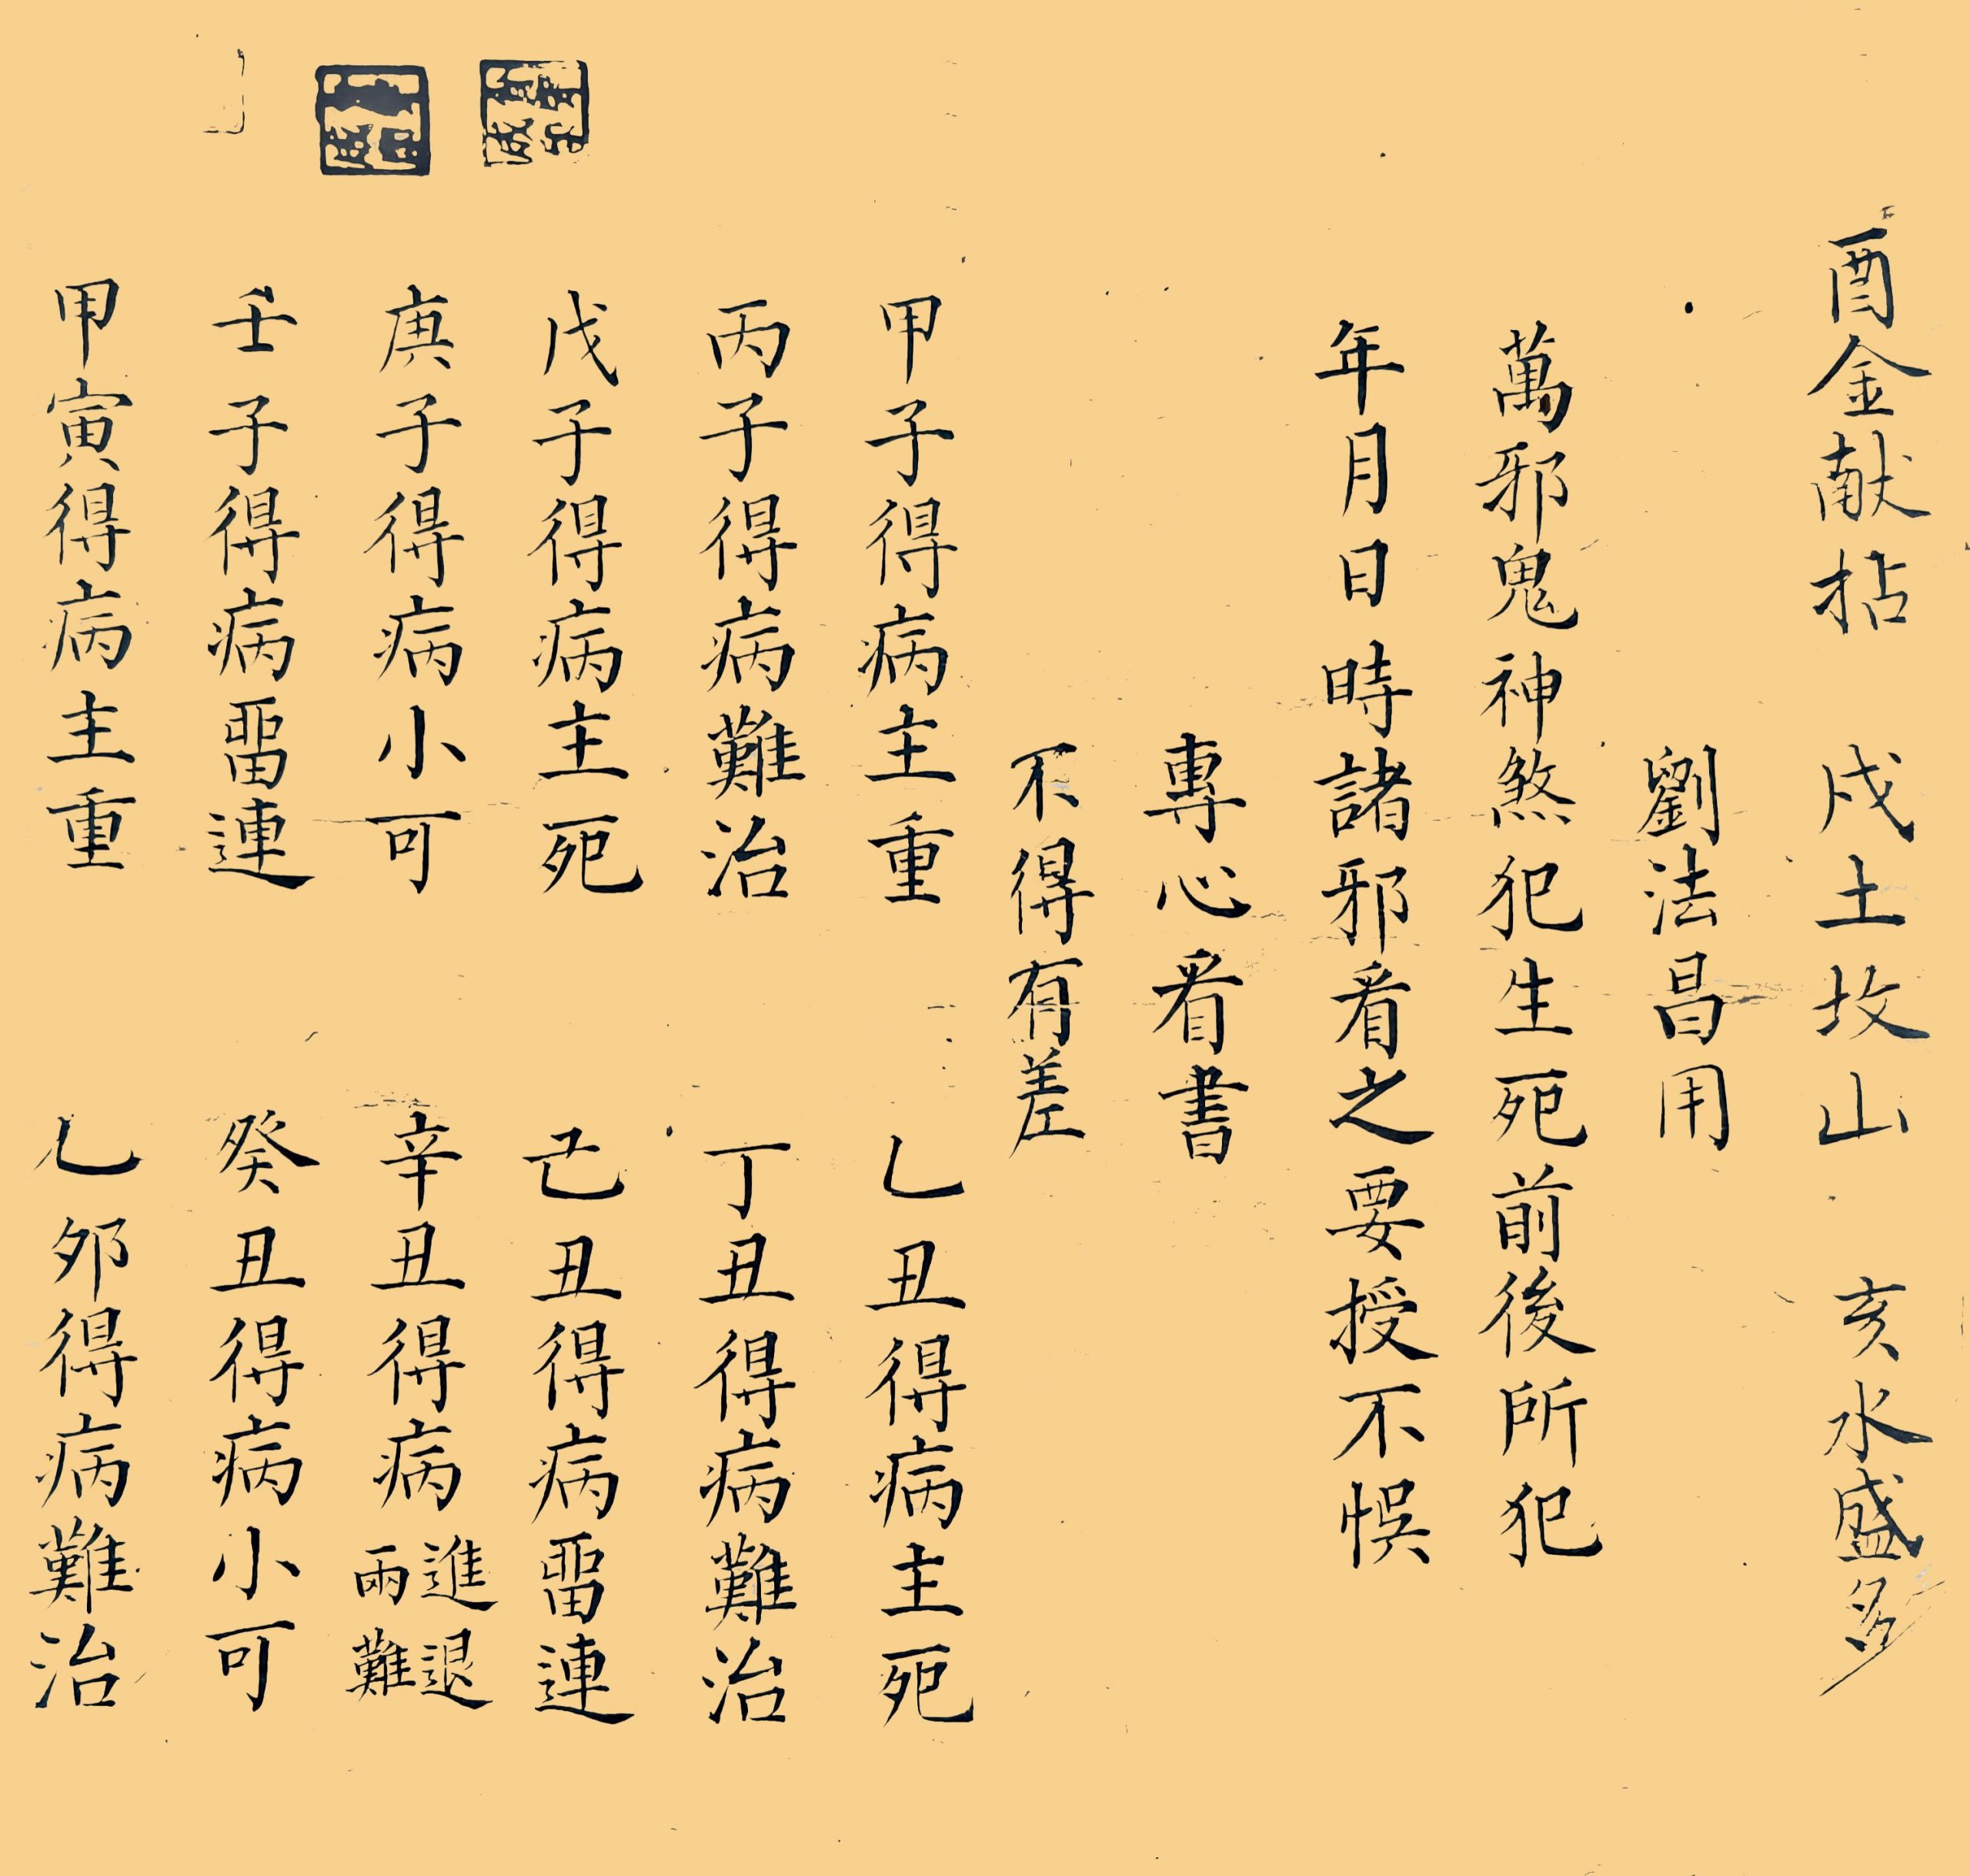 酉金献拈　戍土坟山　亥水盛多
劉法昌用
萬邪鬼神煞犯生死前後所犯
年月日時諸邪看之要授不悞
專心看書
不得有差
甲子得病主重　乙丑得病主死
丙子得病難治　丁丑得病難治
戊子得病主死　己丑得病畱連
庚子得病小可　辛丑得病進退兩難
壬子得病畱連　癸丑得病小可
甲寅得病主重　乙卯得病難治